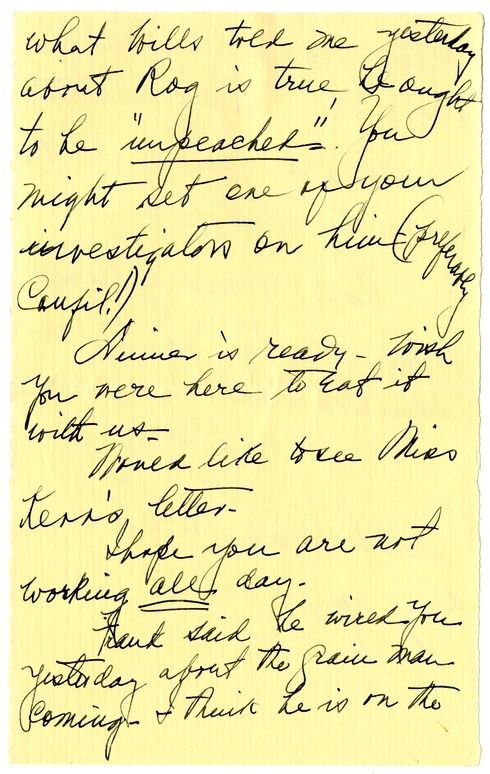 what Wills told me yesterday
about Rog is true, he ought
to be "impeached". You
might set one of your
investigators on him (preferably
Caufil!)
Dinner is ready - wish
you were here to eat it
with us -
Would like to see Miss
Kerr's letter -
I hope you are not
working all day.
Frank said he wired you
yesterday about the grain man
coming - I think he is on the